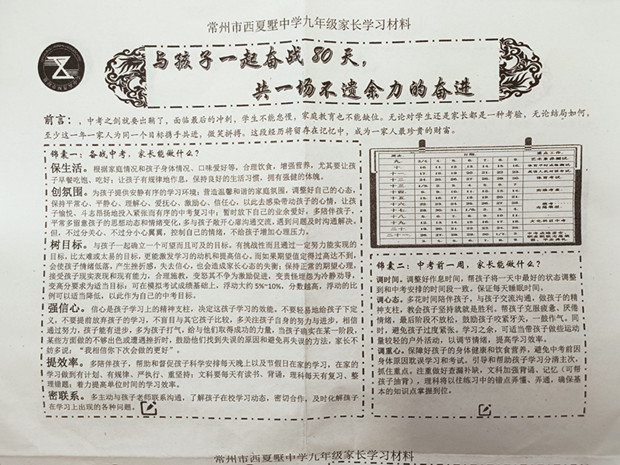 常州市西夏墅中学九年级家长学习材料
与孩子一起奋战80天，
共一场不遗余力的奋进
前言：，中考之剑就要出鞘了，面临最后的冲刺，学生不能怠慢，家庭教育也不能缺位。无论对学生还是家长都是一种考验，无论结局如何，
至少这一年一家人为同一个目标携手共进，微笑拼搏。这段经历将留存在记忆中，成为一家人最珍贵的财富。
锦囊一：备战中考，家长能做什么？
保生活。根据家庭情况和孩子身体情况、口味爱好等，合理饮食，增强营养，尤其要让孩
子早餐吃饱、吃好；让孩子有规律地作息，保持良好的生活习惯，拥有强健的体魄。
创氛围。为孩子提供安静有序的学习环境；营造温馨和谐的家庭氛围，调整好自己的心态，
保持平常心、平静心、理解心、爱抚心、激励心、信任心，以此去感染带动孩子的心情，让孩
子愉悦、斗志昂扬地投入紧张而有序的中考复习中；暂时放下自己的业余爱好，多陪伴孩子，
平常多留意孩子的思想动态和情绪变化，多与孩子敞开心扉沟通交流，遇到问题及时沟通解决。
但，不过分关心，不过分小心翼翼，控制自己的情绪，不给孩子增加心理压力。
树目标。与孩子一起确立一个可望而且可及的目标，有挑战性而且通过一定努力能实现的
目标，比太难或太易的目标，更能激发学习的动机和提高信心，而如果期望值定得过高达不到，
会使孩子情绪低落，产生挫折感，失去信心，也会造成家长心态的失衡；保持正常的期望心理，
接受孩子现实表现和现有能力，合理施教，变怒其不争为激励促进，变责怪埋怨为冷静劝导，
变高分要求为适当目标；可在模拟考试成绩基础上，浮动大约5%~10%。分数越高，浮动的比
例可以适当降低，以此作为自己的中考目标。
强信心。信心是孩子学习上的精神支柱，决定这孩子学习的效能。不要轻易地给孩子下定
义，不要提前放弃孩子的学习，不盲目与其它孩子比较，多关注孩子自身的努力与进步，相信
通过努力，孩子能有进步，多为孩子打气，给与他们取得成功的力量，当孩子确实在某一阶段，
某些方面做的不够出色或遭遇挫折时，鼓励他们找到失误的原因和避免再失误的方法，家长不
妨多说：“我相信你下次会做的更好”。
提效率。多陪伴孩子，帮助和督促孩子科学安排每天晚上以及节假日在家的学习，在家的
学习做到有计划、有规律，严执行、重坚持；文科要每天有读书、背诵，理科每天有复习、整
理错题；着力提高单位时间的学习效率。
密联系。多主动与孩子老师联系沟通，了解孩子在校学习动态，密切合作，及时化解孩子
在学习上出现的各种问题。
锦囊二：中考前一周，家长能做什么？
调时间。调整好作息时间，帮孩子将一天中最好的状态调整
到和中考安排的时间段一致，保证每天睡眠时间。
调心态。多花时间陪伴孩子，与孩子交流沟通，做孩子的精
神支柱，教会孩子坚持就就是胜利，帮孩子克服疲倦、厌倦
情绪，最后阶段不放。鼓励孩子咬紧牙关，一鼓作气。同
时，避免孩子过度紧张，学习之余，可适当带孩子做些运动
量较轻的户外活动，以调节情绪，提高学习效率。
调重心。保障好孩子的身体健康和饮食营养，避免中考前因
身体原因耽误学习和考试，引导和帮助孩子学习分清主次，
抓住重点。注重做好查漏补缺，文科加强背诵、记忆（可帮
孩子抽背），理科将以往练习中的错点弄懂、弄通，确保基
本的知识点掌握到位。
常州市西夏墅中学九年级家长学习材料